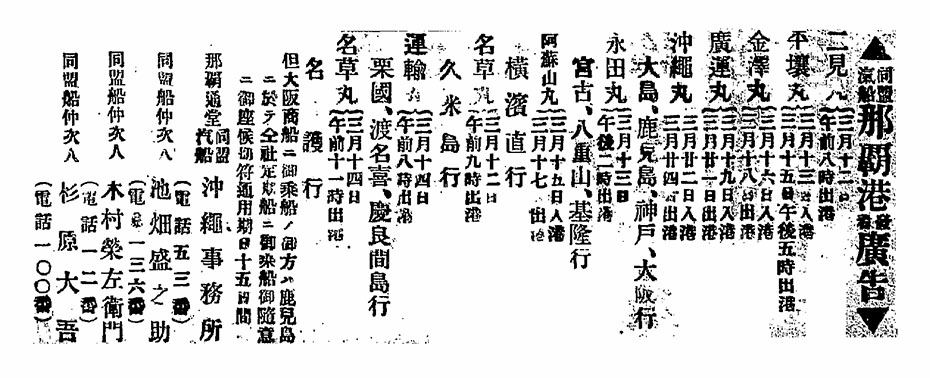 ▲同盟汽船那覇港発着廣告▼
二見丸
三月十二日
午前八時出港
平壤丸
三月十三入港
三月十五日午後五時出港
金澤丸
三月十六日入港
三月十八出港
廣運丸
三月十九日入港
三月廿一日出港
沖繩丸
三月廿二日入港
三月廿四日出港
大島、鹿兒島、神戸、大阪行
永田丸
三月十三日
午後二時出港
宮古、八重山、基隆行
阿蘇山丸
三月十五日入港
三月十七 出港
橫濱直行
名草丸
三月十二日
午前九時出港
久米島行
運輸丸
三月十四日
午前八時出港
栗國、渡名喜、慶良間島行
名草丸
三月十四日
午前十一時出港
名護行
但大阪商船ニ御乘船ノ御方ハ鹿兒島
ニ於テ全社定期船ニ御乘船御隨意
ニ御座候切符通用期日十五日間
那覇通堂 同盟汽船 沖繩事務所
(電話五三番)
同盟船仲次人 池畑盛之助
(電話一三六番)
同盟船仲次人 木村榮左衛門
(電話一二番)
同盟船仲次人 杉原大吾
(電話一〇〇番)